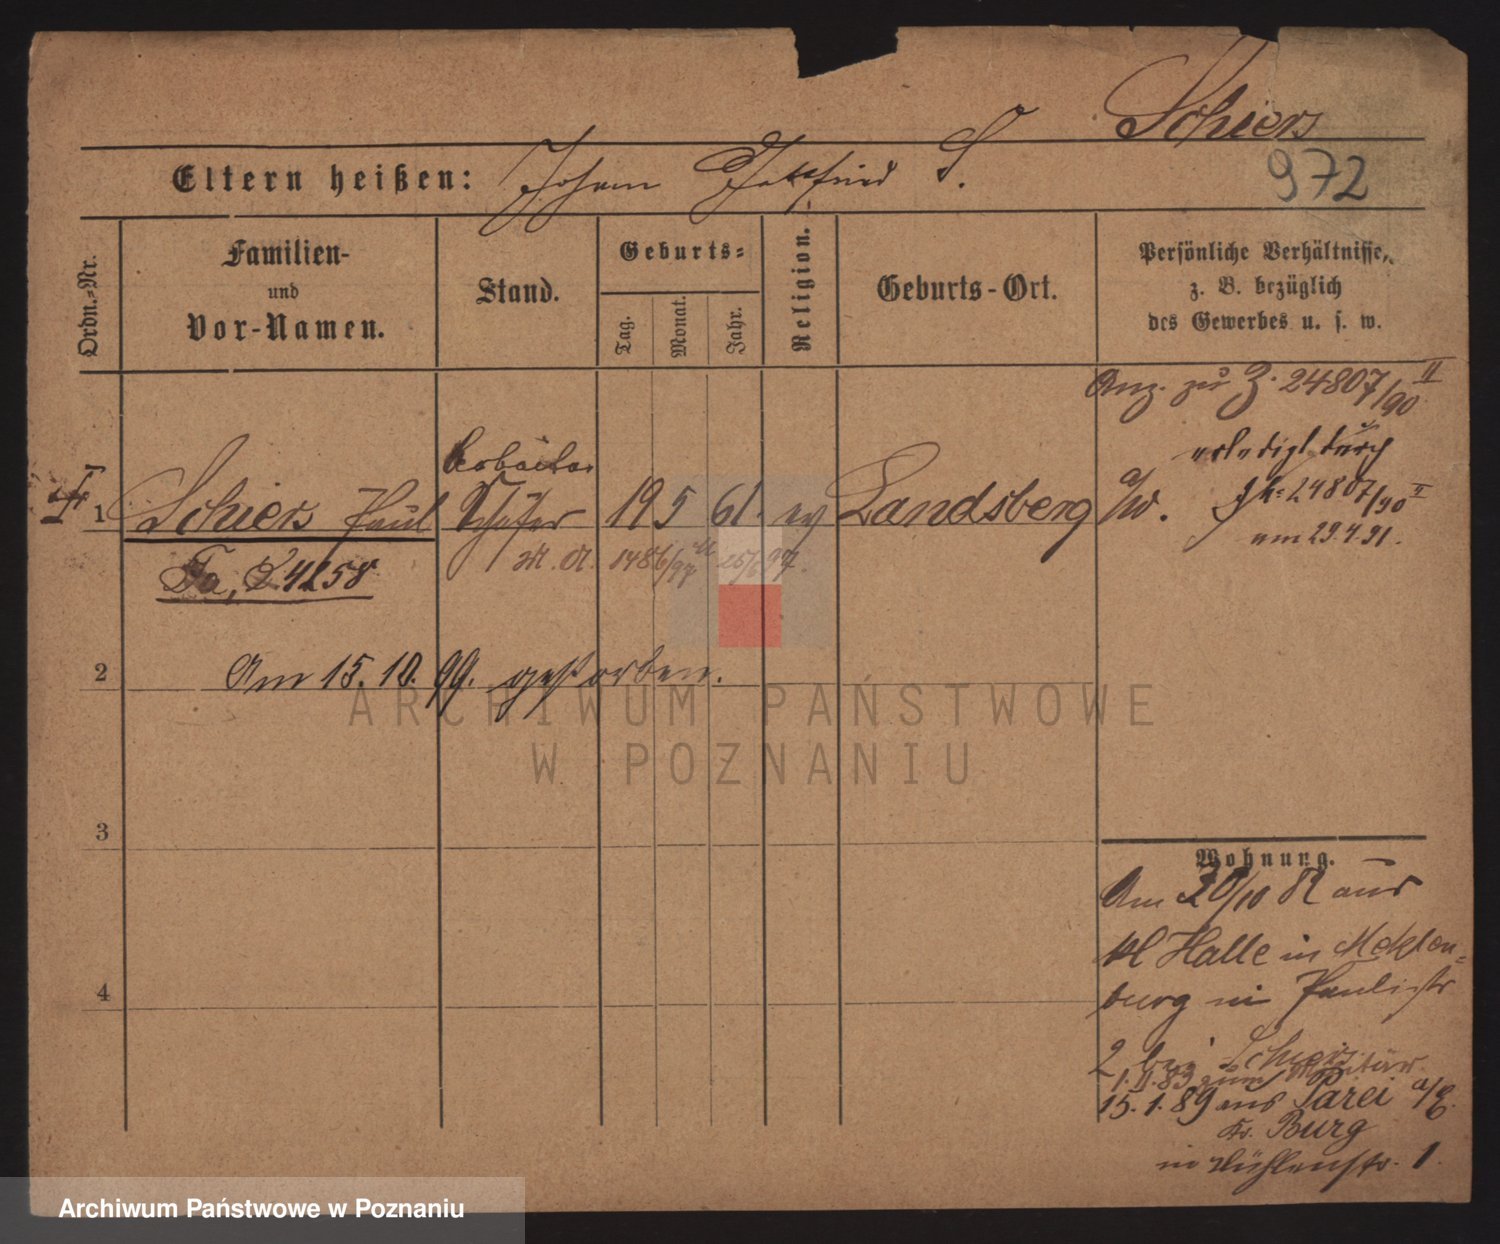 Schiers
Eltern heißen: Johann Gottfried S.
972
Ordn.-Nr.
Familien-
und
Vor-Namen.
Stand.
Geburts-
Tag.
Monat.
Jahr.
Religion.
Geburts-Ort.
Persönliche Verhältnisse,
z. B. bezüglich
des Gewerbes u. s. w.
Anz. zu Z. 24807/90 II
erledigt durch
24807/90 II
am 29.4.91.
Arbeiter
1 Schiers Paul Schäfer 19 5 61. ev Landsberg a/W.
Fa, 24158
M. A. 1486/97 25/6 97.
2 Am 15.10.99. gestorben.
ARCHIWUM PAŃSTWOWE
W POZNANIU
3
Wohnung.
Am 20/10 82 aus
Kl Halle in Meklen-
burg in Paulistr
4
2 bei Schiers
1.II.83 zum Militär.
15.1.89 aus Parei a/E.
Kr. Burg
in Mühlenstr. 1.
Archiwum Państwowe w Poznaniu